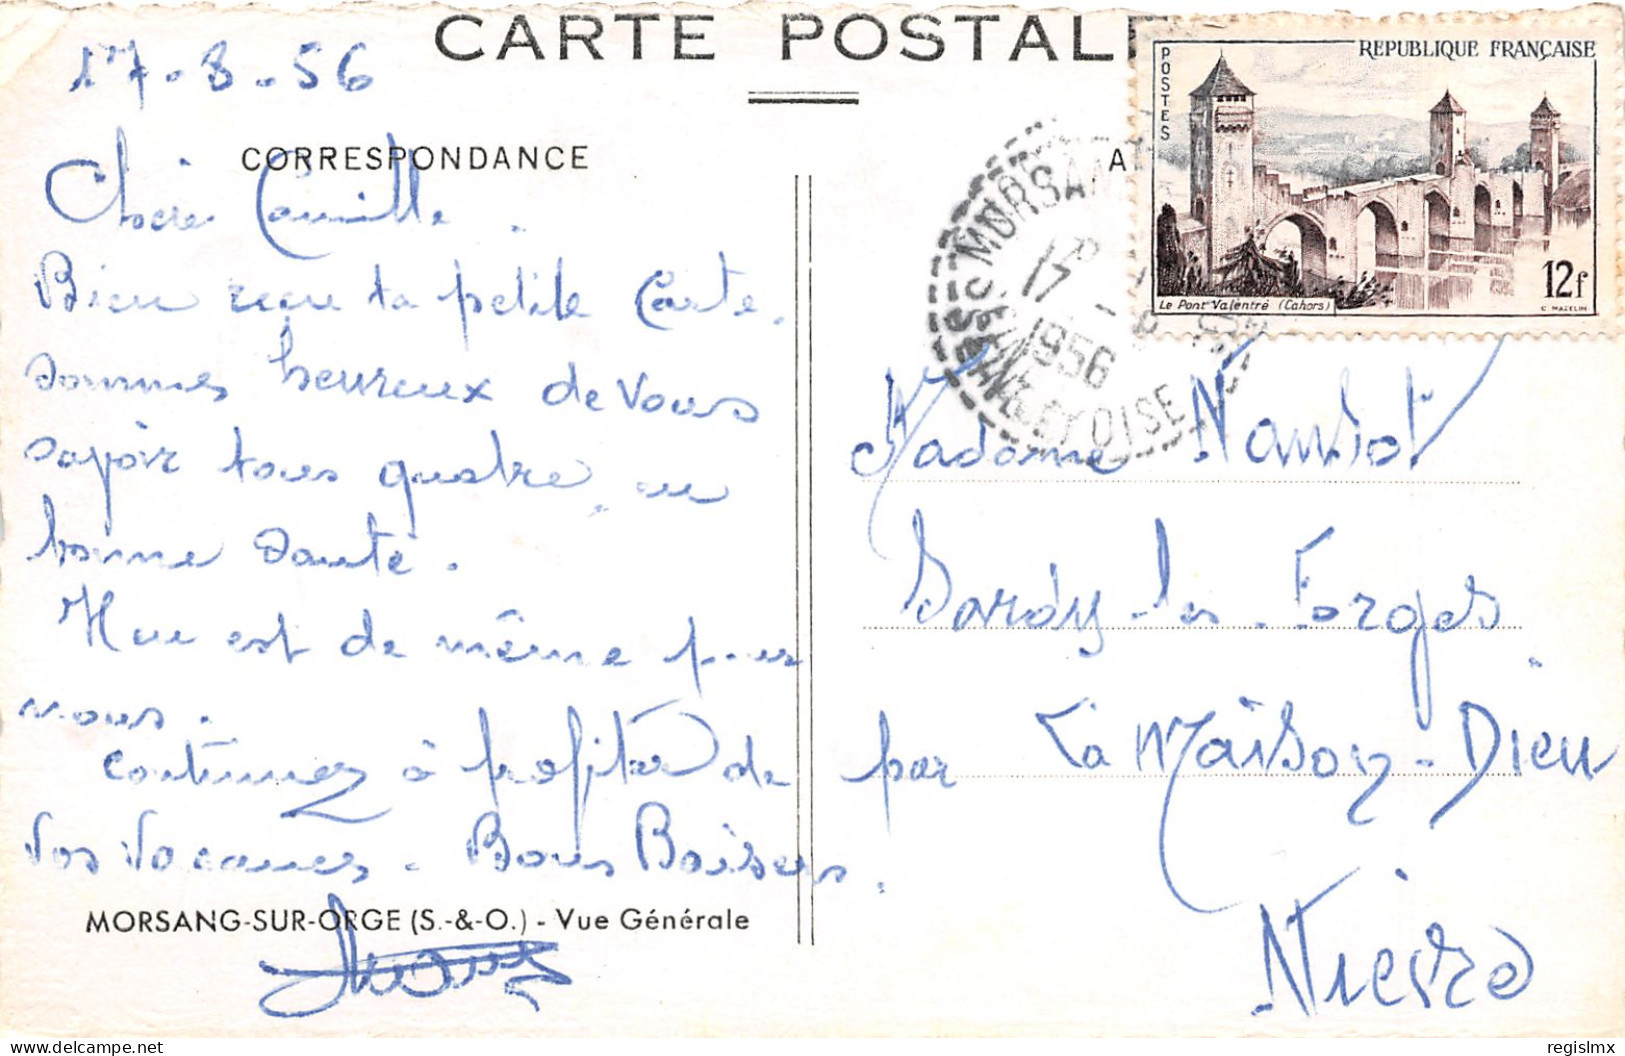 CARTE POSTALE
17-8-56
CORRESPONDANCE
Chère Camille.
Bien reçu ta petite Carte.
sommes heureux de vous
savoir tous quatre, en
bonne santé.
Il en est de même pour
nous.
Continuez à profiter de
vos vacances. Bons Baisers.
MORSANG-SUR-ORGE (S.-&-O.) - Vue Générale
A
REPUBLIQUE FRANÇAISE
POSTES
12f
Le Pont Valentré (Cahors)
C. MAZELIN
MORSAN
17 -8
1956
SEINE
OISE
Madame Naudot
Sardy-les-Forges
par La Maison-Dieu
Nièvre
Delcampe.net
regislmx